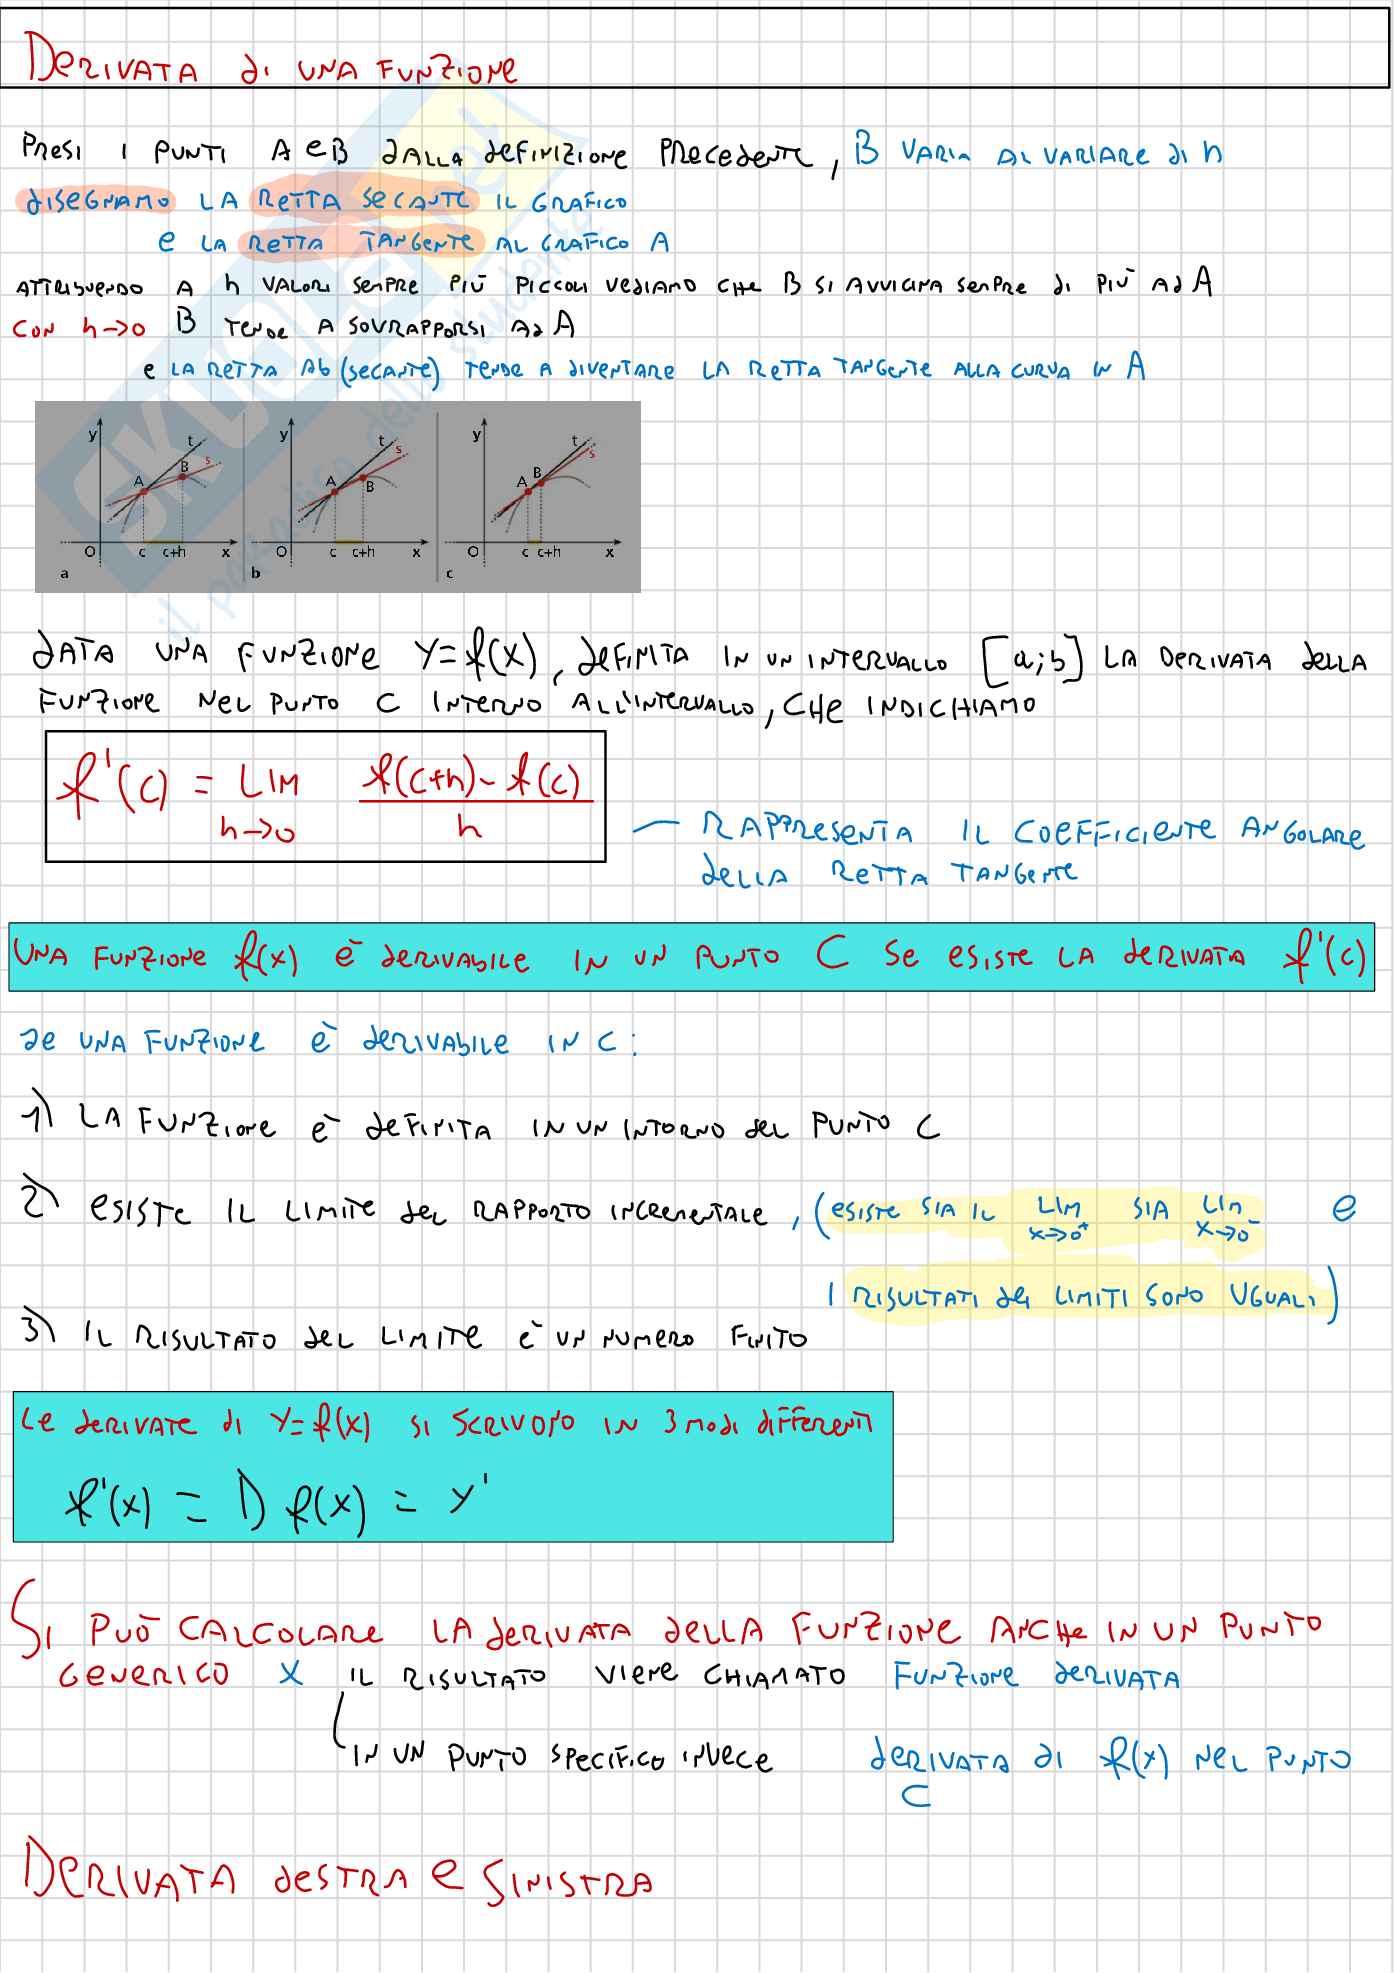 DERIVATA di UNA FUNZIONE
PRESI I PUNTI A e B dALLA deFINIZIONE PRECEDENTE, B VARIA AL VARIARE di h
dISEGNAMO LA RETTA SECANTE IL GRAFICO
e LA RETTA TANGENTE AL GRAFICO A
ATTRIBUENDO A h VALORI SEMPRE PIÙ PICCOLI VEDIAMO CHE B SI AVVICINA SEMPRE di PIÙ Ad A
CON h→0 B TENDE A SOVRAPPORSI Ad A
e LA RETTA Ab (SECANTE) TENDE A dIVENTARE LA RETTA TANGENTE ALLA CURVA IN A
y t s A B O c c+h x a
y t s A B O c c+h x b
y t s A B O c c+h x c
dATA UNA FUNZIONE Y=f(x), deFINITA IN UN INTERVALLO [a;b] LA DERIVATA dELLA
FUNZIONE NEL PUNTO C INTERNO ALL'INTERVALLO, CHE INDICHIAMO
f'(c) = LIM h→0 f(c+h) - f(c) / h
RAPPRESENTA IL COEFFICIENTE ANGOLARE
dELLA RETTA TANGENTE
UNA FUNZIONE f(x) È dERIVABILE IN UN PUNTO C SE ESISTE LA dERIVATA f'(c)
SE UNA FUNZIONE È dERIVABILE IN C:
1) LA FUNZIONE È dEFINITA IN UN INTORNO dEL PUNTO C
2) ESISTE IL LIMITE dEL RAPPORTO INCREMENTALE, (ESISTE SIA IL LIM x→0⁺ SIA LIM x→0⁻ e
I RISULTATI dEI LIMITI SONO UGUALI)
3) IL RISULTATO dEL LIMITE È UN NUMERO FINITO
LE dERIVATE di Y=f(x) SI SCRIVONO IN 3 MODI dIFFERENTI
f'(x) = D f(x) = Y'
SI PUÒ CALCOLARE LA dERIVATA dELLA FUNZIONE ANCHE IN UN PUNTO
GENERICO X IL RISULTATO VIENE CHIAMATO FUNZIONE dERIVATA
IN UN PUNTO SPECIFICO INVECE dERIVATA dI f(x) NEL PUNTO
C
DERIVATA dESTRA e SINISTRA